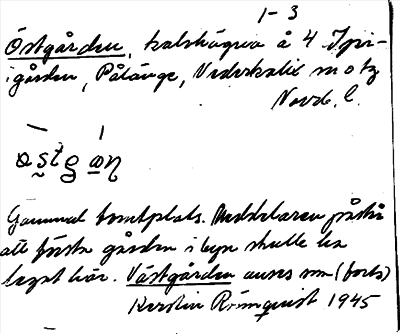 1-3
Östgården, å 4
gården, Pålänge, Nederkalix
Norrb. l.
Gammal tomtplats. Meddelaren påstår
att första gården i byn skulle ha
legat här. Västgården anses (forts)
Kerstin Rönnquist 1945